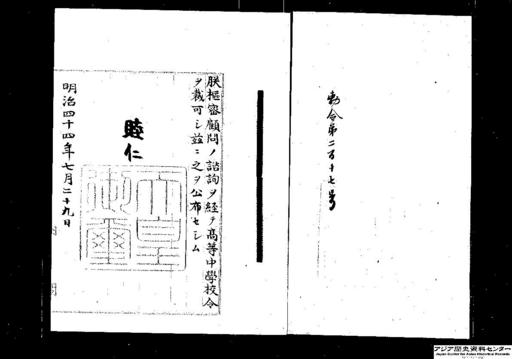 勅令第二百十七号
朕樞密顧問ノ諮詢ヲ経テ高等中學校令
ヲ裁可シ茲ニ之ヲ公布セシム
睦仁
天皇
御璽
明治四十四年七月二十九日
アジア歴史資料センター
Japan Center for Asian Historical Records